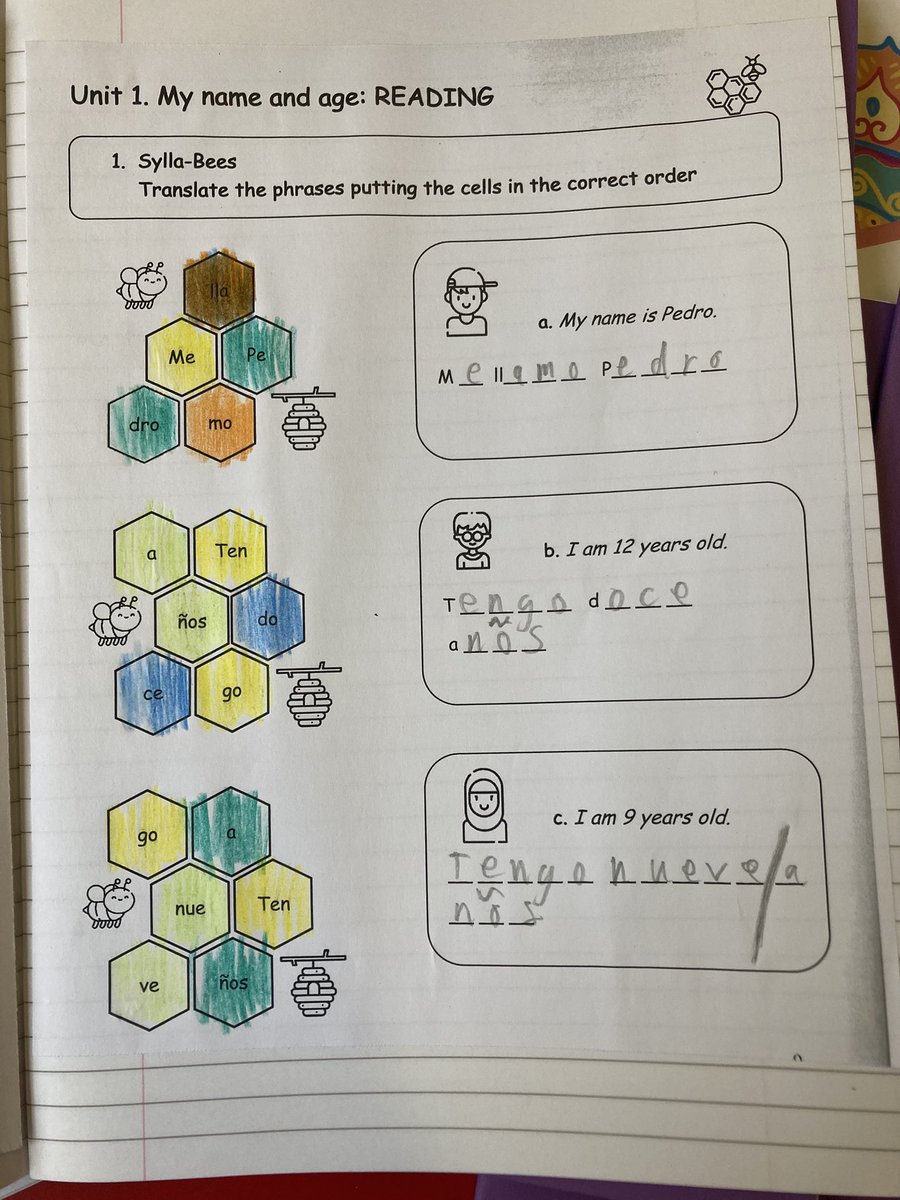 Unit 1. My name and age: READING
1. Sylla-Bees
Translate the phrases putting the cells in the correct order
lla
Me Pe
dro mo
a. My name is Pedro.
Me llamo Pedro
a Ten
ños do
ce go
b. I am 12 years old.
Tengo doce
años
go a
nue Ten
ve ños
c. I am 9 years old.
Tengo nueve/a
ños